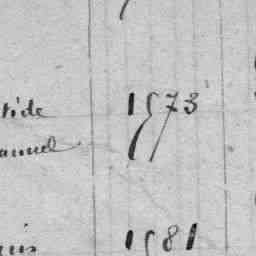 tide 1573
annuel
1581